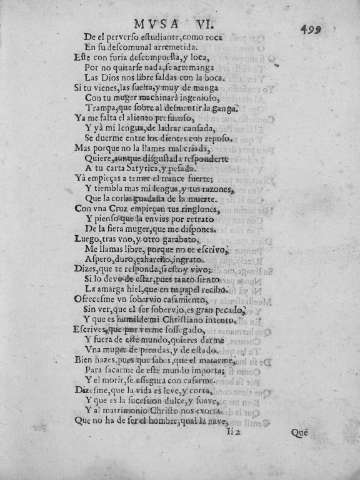 MVSA VI.
499
De el perverso estudiante, como roca
En su descomunal arremetida.
Este con furia descompuesta, y loca,
Por no quitarse nada, se arremanga
Las Dios nos libre faldas con la boca.
Si tu vienes, las suelta, y muy de manga
Con tu muger machinarà ingenioso,
Trampa, que sobre al desmentir la ganga.
Ya me falta el aliento presuroso,
Y yà mi lengua, de ladrar cansada,
Se duerme entre los dientes con reposo.
Mas porque no la llames mal criada,
Quiere, aunque disgustada responderte
A tu carta Satyrica, y pesada.
Yà empieças a temer el trance fuerte;
Y tiembla mas mi lengua, y tus razones,
Que la corba guadaña de la muerte.
Con vna Cruz empieçan tus ringlones,
Y pienso que la envias por retrato
De la fiera muger, que me dispones.
Luego, tras vno, y otro garabato,
Me llamas libre, porque no te escrivo,
Aspero, duro, zahareño, ingrato.
Dizes, que te responda, si estoy vivo;
Si lo devo de estar, pues tanto siento
La amarga hiel, que en tu papel recibo.
Ofrecesme vn sobervio casamiento,
Sin ver, que el ser sobervio, es gran pecado,
Y que es humilde mi Christiano intento.
Escrives, que por verme sossegado,
Y fuera de este mundo, quieres darme
Vna muger de prendas, y de estado.
Bien hazes, pues que sabes, que el matarme,
Para sacarme de este mundo importa;
Y el morir, se assegura con casarme.
Dizesme, que la vida es leve, y corta,
Y que es la sucession dulce, y suave,
Y al matrimonio Christo nos exorta.
Que no ha de ser el hombre, qual la nave,
Ii 2
Què